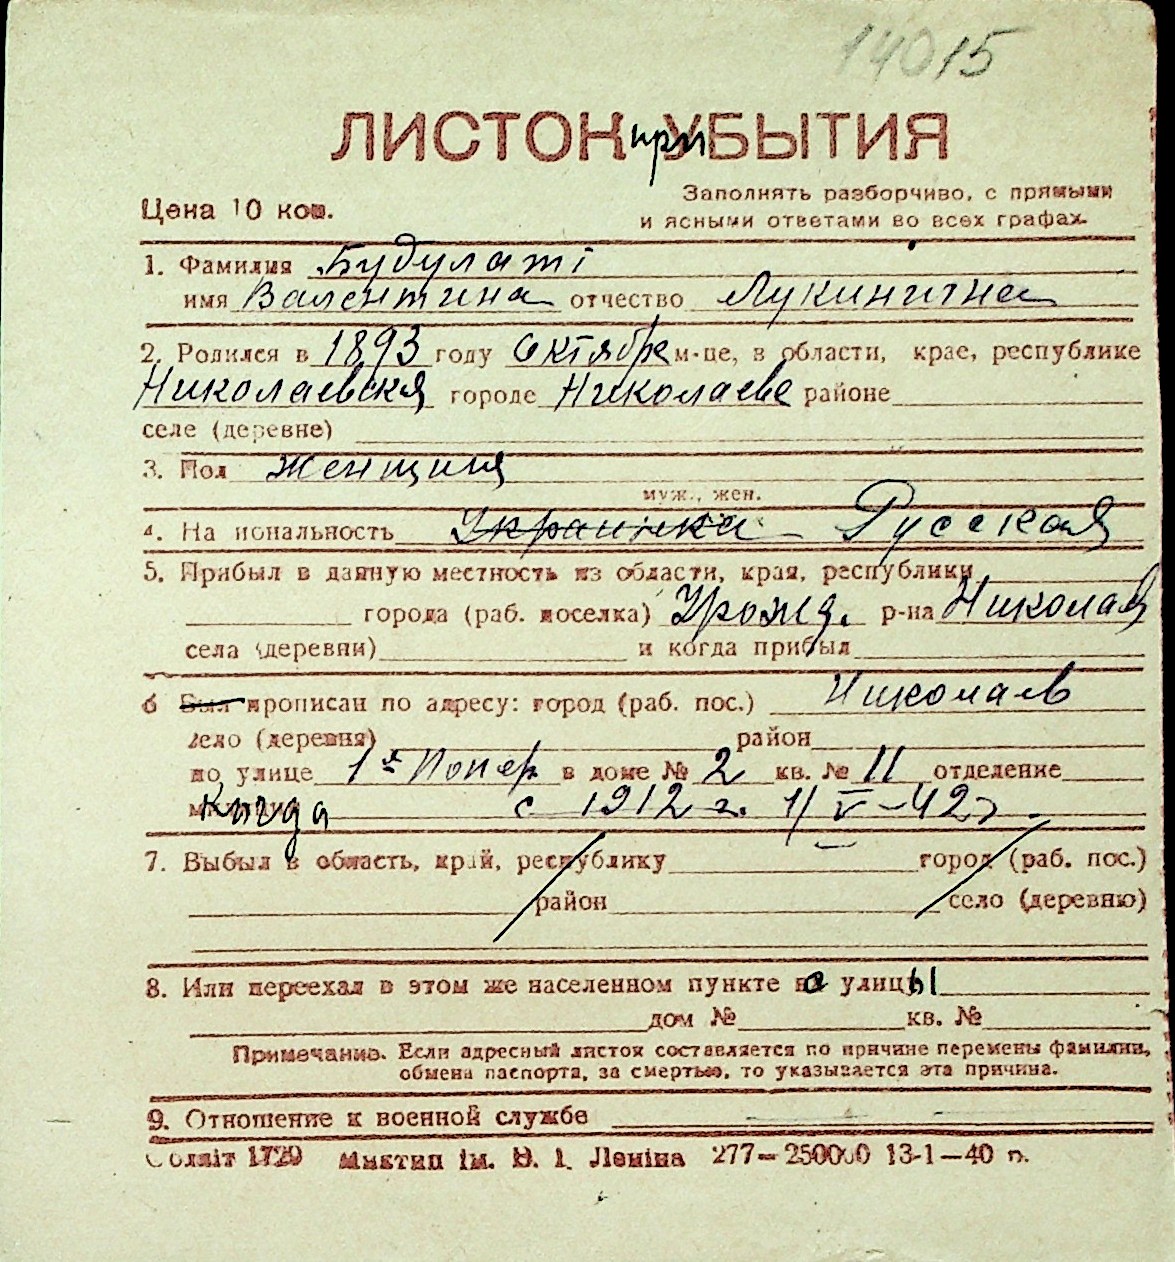 14015
ЛИСТОК при УБЫТИЯ
Цена 10 коп.
Заполнять разборчиво, с прямыми
и ясными ответами во всех графах.
1. Фамилия Будулаті
имя Валентина отчество Лукинитна
2. Родился в 1893 году Октябре м-це, в области, крае, республике
Николаевская городе Николаеве районе
селе (деревне)
3. Пол женщина
муж., жен.
4. На иональность Украинка Русская
5. Прибыл в данную местность из области, края, республики
города (раб. поселка) Урожд. р-на Николаев
села (деревни) и когда прибыл
6 Был прописан по адресу: город (раб. пос.) Николаев
село (деревня) район
по улице 1я Попер. в доме № 2 кв. № 11 отделение
Когда с 1912 г. 1/V-42г.
7. Выбыл в область, край, республику город (раб. пос.)
район село (деревню)
8. Или переехал в этом же населенном пункте на улицы
дом № кв. №
Примечание. Если адресный листок составляется по причине перемены фамилии,
обмена паспорта, за смертью, то указывается эта причина.
9. Отношение к военной службе
Облліт 1720 Миктип ім. В. І. Леніна 277—250000 13-1—40 р.